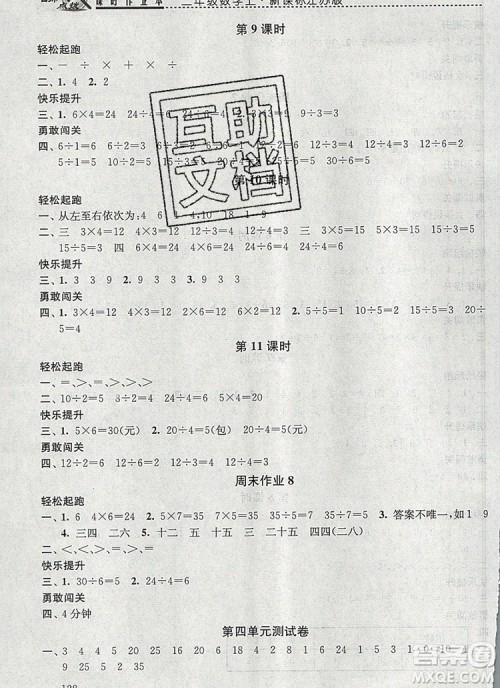 课时作业本 二年级数学上·新课标江苏版
第9课时
轻松起跑
一、
二、1.4 2.2
快乐提升
三、1.6×4=24 24÷4=6
勇敢闯关
四、6÷1=6 6÷2=3 6÷3=2
5÷1=5 10÷2=5 15÷3=5
互助
文档
第10课时
轻松起跑
一、从左至右依次为:4 6 1 4 10 18 1 9
二、三 3×4=12 12÷3=4 12÷4=3 三 3×5=15 15÷5=3
15÷3=5 四 4×6=24 24÷4=6 24÷6=4
快乐提升
三、1.3 3 3 2.9 3 3 3.9
勇敢闯关
四、1.3×4=12 2×6=12 4×3=12 6×2=12 2.5÷5=1 10÷5=2 15÷5=3 20÷
5=4
第11课时
轻松起跑
一、=、>、>、=、>、=
二、10÷2=5 2×5=10 24÷4=6 5×4=20
快乐提升
三、1.5×6=30(元) 2.20÷4=5(包) 20÷5=4(元)
勇敢闯关
四、12÷6=2 12÷3=4
周末作业8
轻松起跑
一、1.6 4×6=24 2.5×7=35 7×5=35 35÷5=7 35÷7=5 3.答案不唯一,如1 9
4.三四 二六 5.四六 24÷4=6 24÷6=4 6.四四(二八)
二、<、>、<、>、=、=
快乐提升
三、30÷6=5 24÷6=4
勇敢闯关
四、4分钟
第四单元测试卷
一、3 4 5 9 21 18 8 24 35 2 4 3 1 6 10 4
9 25 5 32
128
答案圈